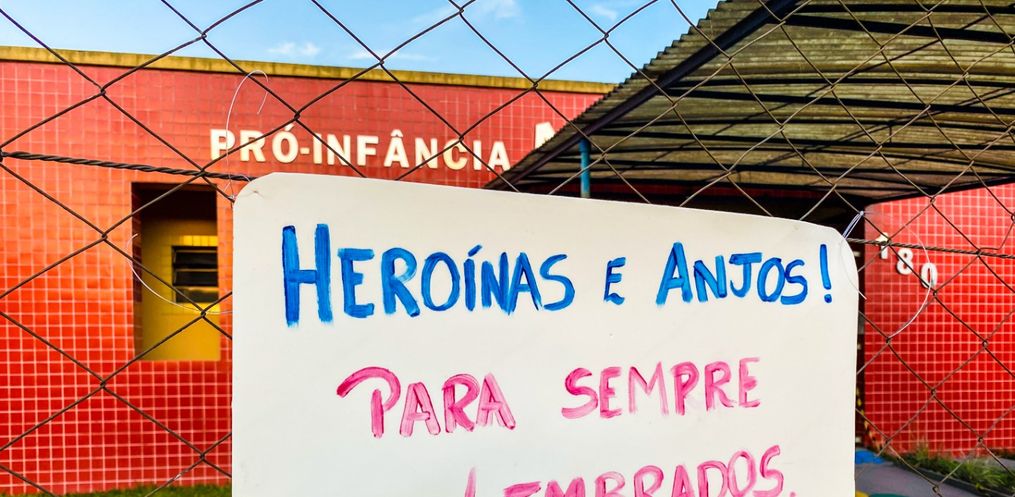 PRÓ-INFÂNCIA
HEROÍNAS E ANJOS!
180
PARA SEMPRE
LEMBRADOS.